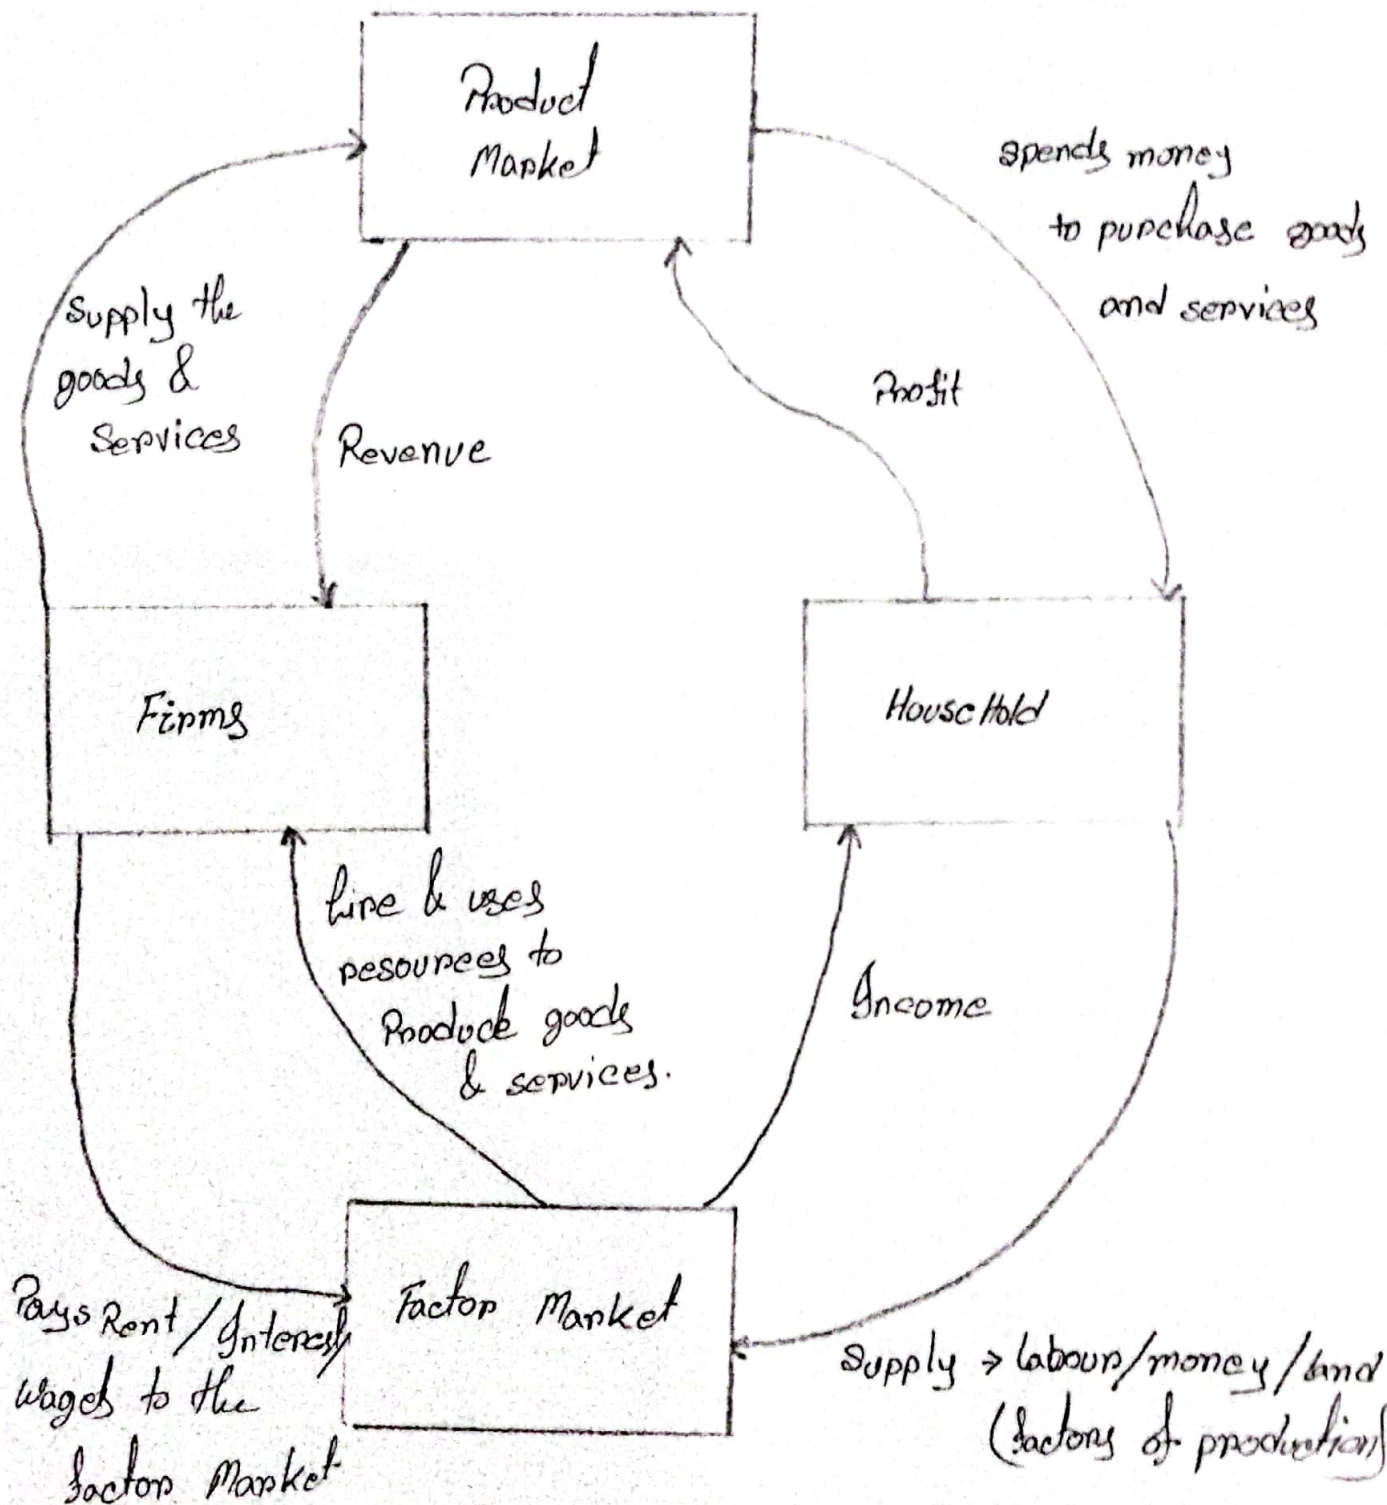 Product
Market
spends money
to purchase goods
and services
Supply the
goods &
Services
Revenue
Profit
Firms
HouseHold
hire & uses
resources to
Produce goods
& services.
Income
Factor Market
Pays Rent/Interest/
wages to the
factor Market
Supply → labour/money/land
(factors of production)